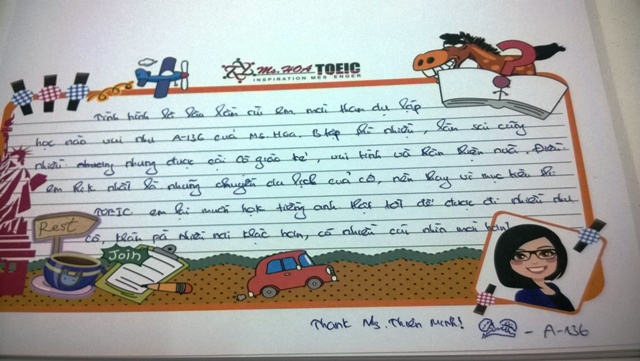 Ms. HOA TOEIC
INSPIRATION MESSENGER
Tình hình là lâu lắm rồi em mới tham dự lớp
học nào vui như A-136 của Ms. Hoa. Btập thì nhiều, làm sai cũng
nhiều nhưng nhưng được cái cô giáo trẻ, vui tính và thân thiện nữa. Điều
em thích nhất là những chuyến du lịch của cô, nên thay vì mục tiêu thi
TOEIC em lại muốn học tiếng anh thật tốt để được đi nhiều như
cô, khám phá nhiều nơi khác hơn, có nhiều cái nhìn mới hơn!
Rest
Join
Thank Ms. Thiên Minh! - A-136